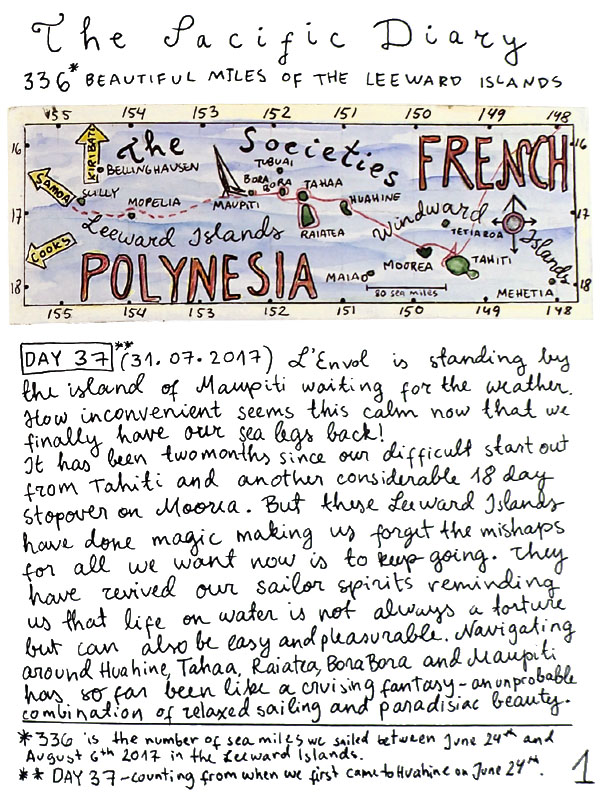 The Pacific Diary
336* BEAUTIFUL MILES OF THE LEEWARD ISLANDS
155 154 153 152 151 150 149 148
16 The Societies FRENCH 16
KIRIBATI
BELLINGHAUSEN
TUBUAI
SAMOA
SCILLY
MOPELIA
MAUPITI
BORA
BORA
TAHAA
HUAHINE
17
17
Leeward Islands
RAIATEA
Windward Islands
TETIAROA
COOKS
POLYNESIA
MAIAO
MOOREA
TAHITI
80 sea miles
MEHETIA
18
18
155 154 153 152 151 150 149 148
DAY 37** (31.07.2017) L'Envol is standing by
the island of Maupiti waiting for the weather.
How inconvenient seems this calm now that we
finally have our sea legs back!
It has been two months since our difficult start out
from Tahiti and another considerable 18 day
stopover on Moorea. But these Leeward Islands
have done magic making us forget the mishaps
for all we want now is to keep going. They
have revived our sailor spirits reminding
us that life on water is not always a torture
but can also be easy and pleasurable. Navigating
around Huahine, Tahaa, Raiatea, Bora Bora and Maupiti
has so far been like a cruising fantasy - an unprobable
combination of relaxed sailing and paradisiac beauty.
* 336 is the number of sea miles we sailed between June 24th and
August 6th 2017 in the Leeward Islands.
** DAY 37 - counting from when we first came to Huahine on June 24th.
1